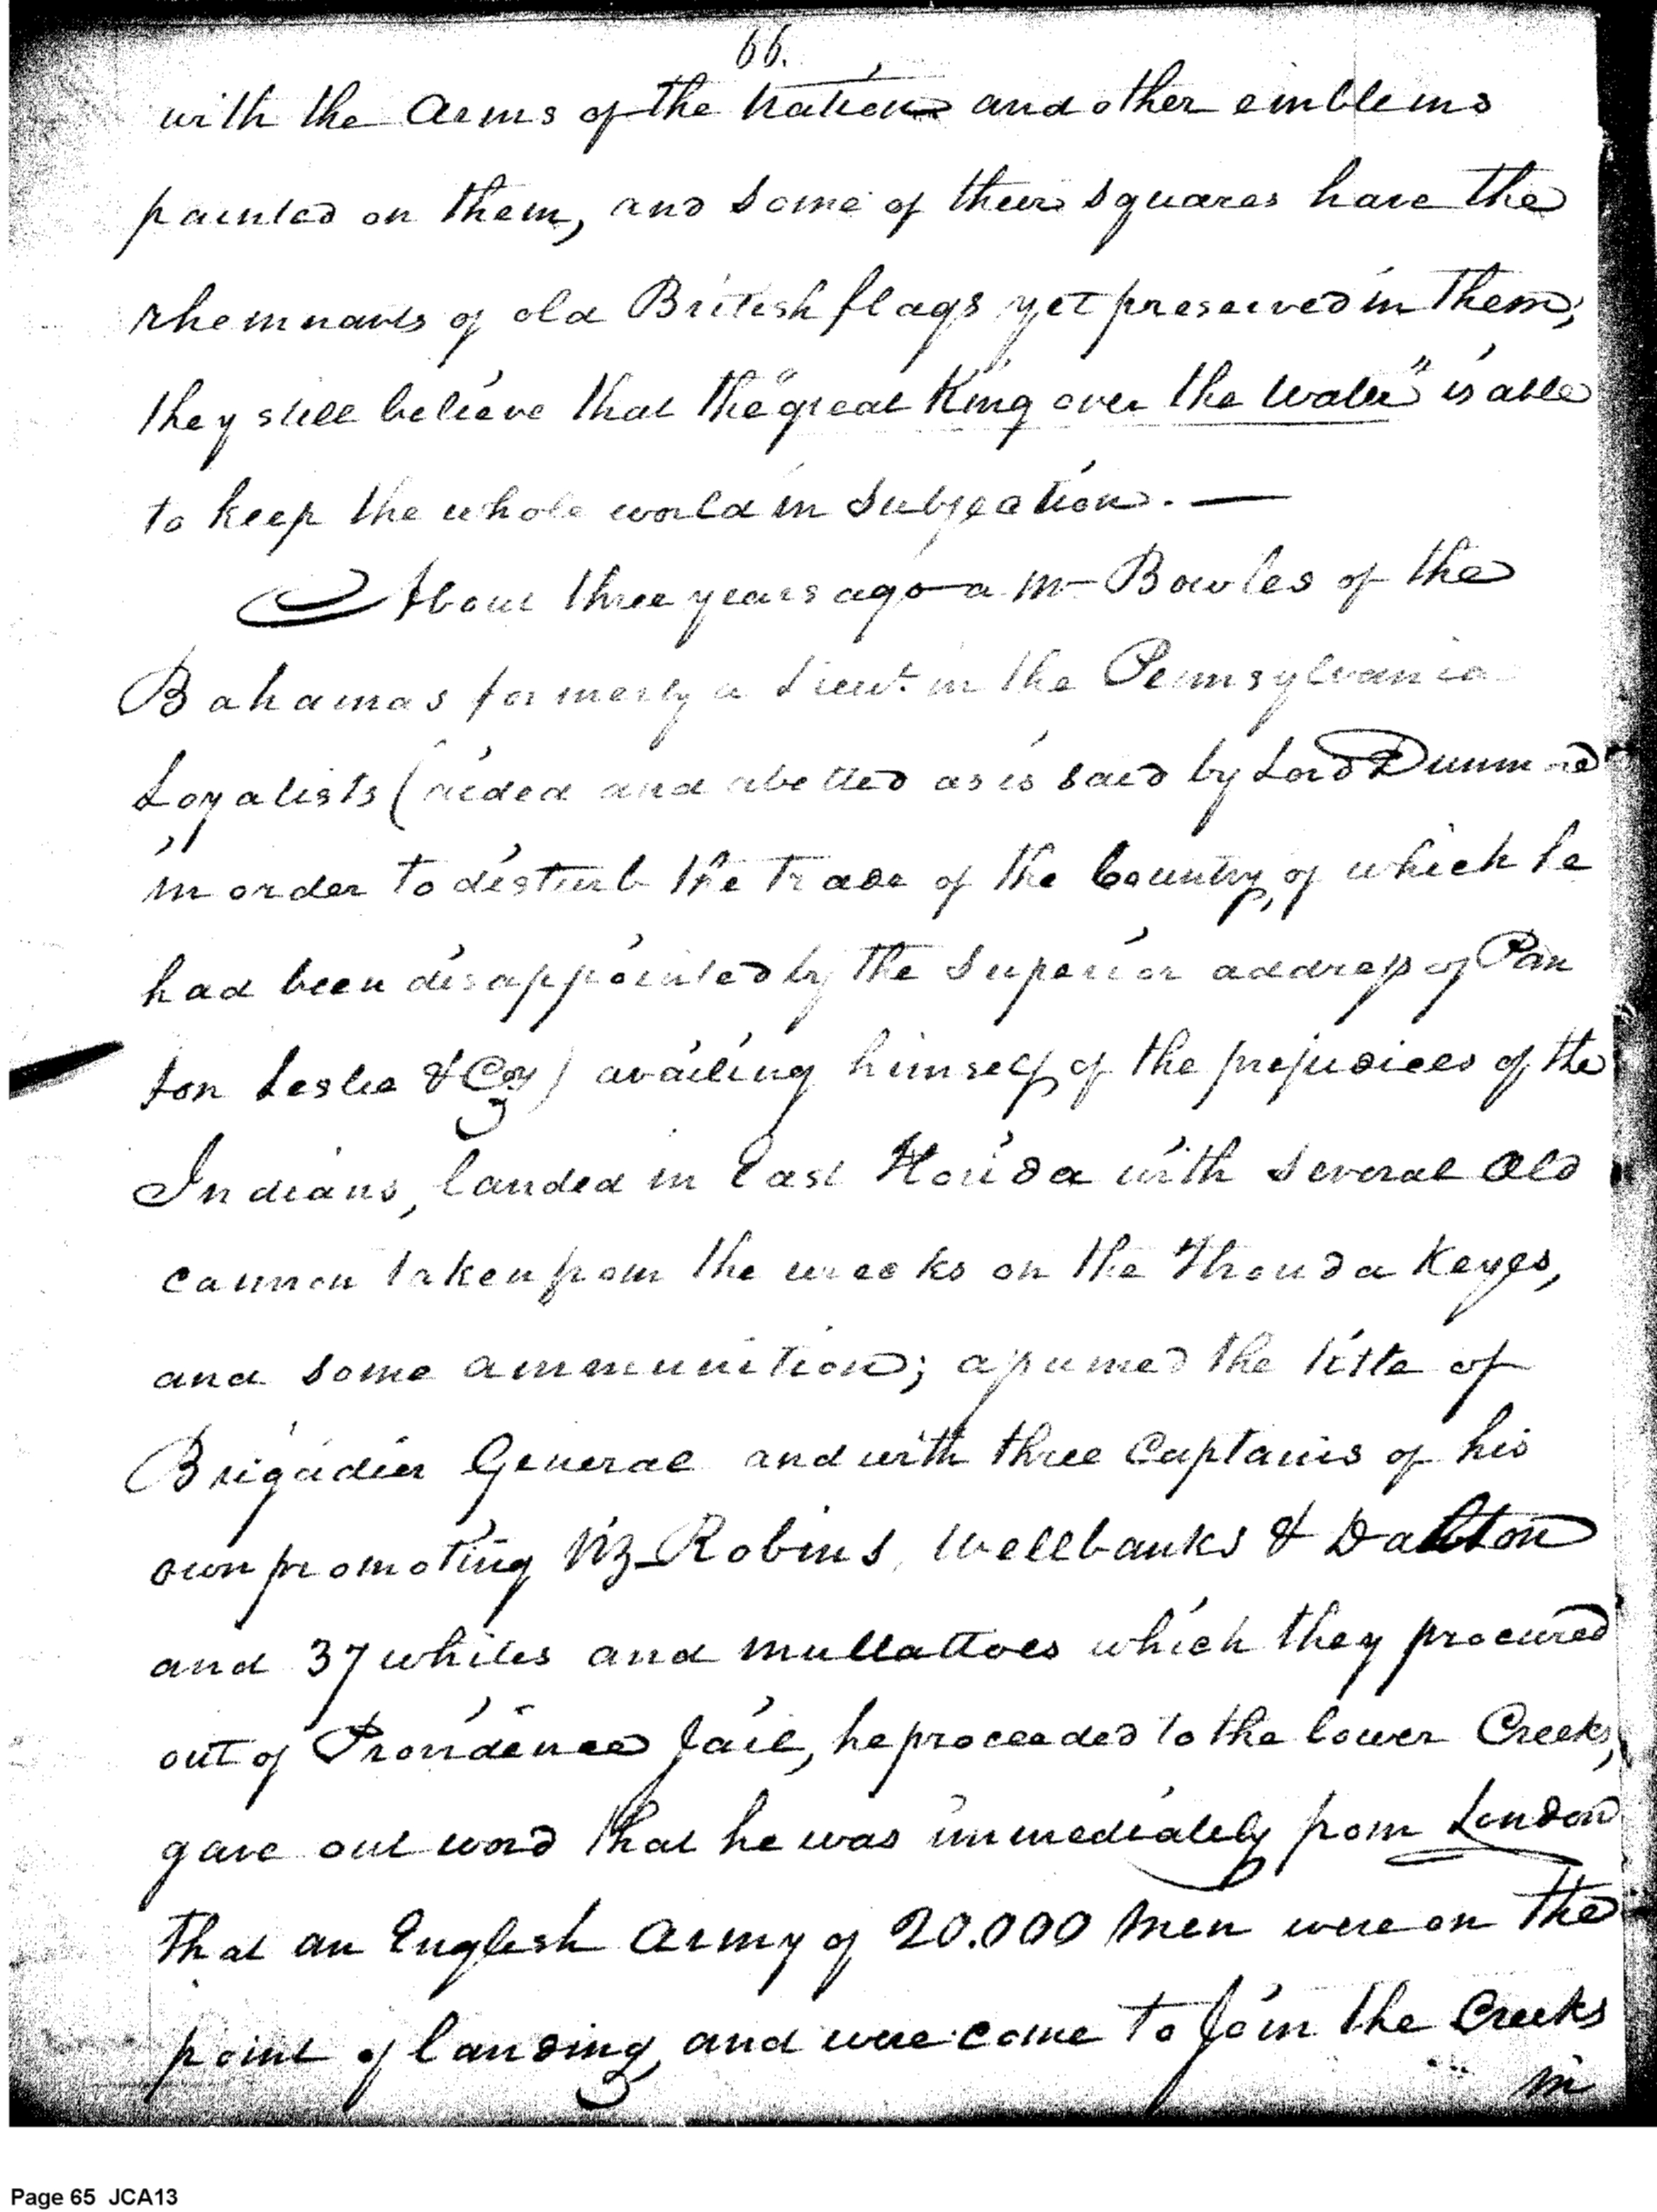 66.
with the Arms of the Nation and other emblems
painted on them, and some of their squares have the
rhemnants of old British flags yet preserved in them;
they still believe that the "great King over the Water" is able
to keep the whole world in subjection. —
About three years ago a Mr Bowles of the
Bahamas formerly a Lieut. in the Pennsylvania
Loyalists (aided and abetted as is said by Lord Dunmore
in order to disturb the trade of the Country, of which he
had been disappointed by the Superior address of Pan
ton Leslie & Coy) availing himself of the prejudices of the
Indians, landed in East Florida with several old
cannon taken from the wrecks on the Florida Keyes,
and some ammunition; assumed the title of
Brigadier General and with three Captains of his
own promoting Viz Robins, Wellbanks & Dalton
and 37 whites and mullattoes which they procured
out of Providence Jail, he proceeded to the lower Creeks,
gave out word that he was immediately from London
that an English Army of 20.000 Men were on the
point of landing, and were come to Join the Creeks
in
Page 65 JCA13